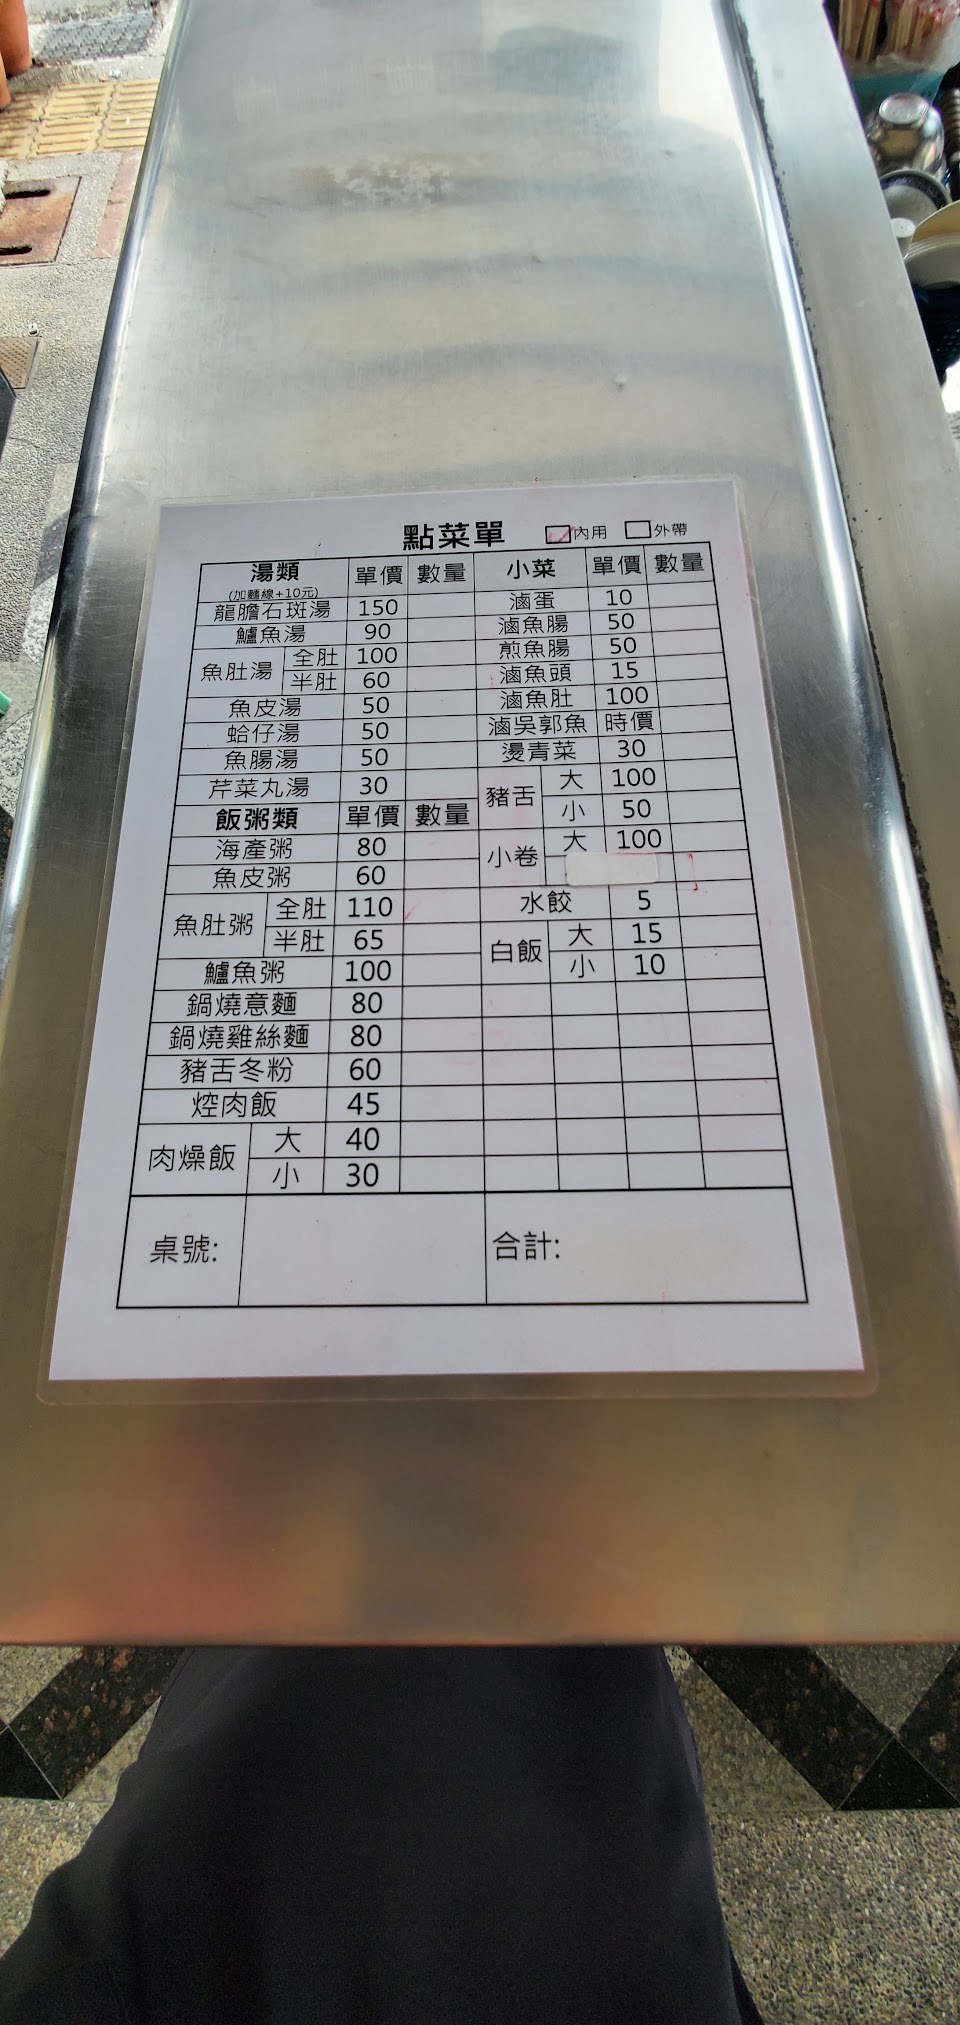 點菜單 內用 外帶
湯類 單價 數量 小菜 單價 數量
(加麵線+10元)
龍膽石斑湯 150 滷蛋 10
鱸魚湯 90 滷魚腸 50
魚肚湯 全肚 100 煎魚腸 50
半肚 60 滷魚頭 15
魚皮湯 50 滷魚肚 100
蛤仔湯 50 滷吳郭魚 時價
魚腸湯 50 燙青菜 30
芹菜丸湯 30 豬舌 大 100
飯粥類 單價 數量 小 50
海產粥 80 小卷 大 100
魚皮粥 60
魚肚粥 全肚 110 水餃 5
半肚 65 白飯 大 15
鱸魚粥 100 小 10
鍋燒意麵 80
鍋燒雞絲麵 80
豬舌冬粉 60
焢肉飯 45
肉燥飯 大 40
小 30
桌號: 合計: